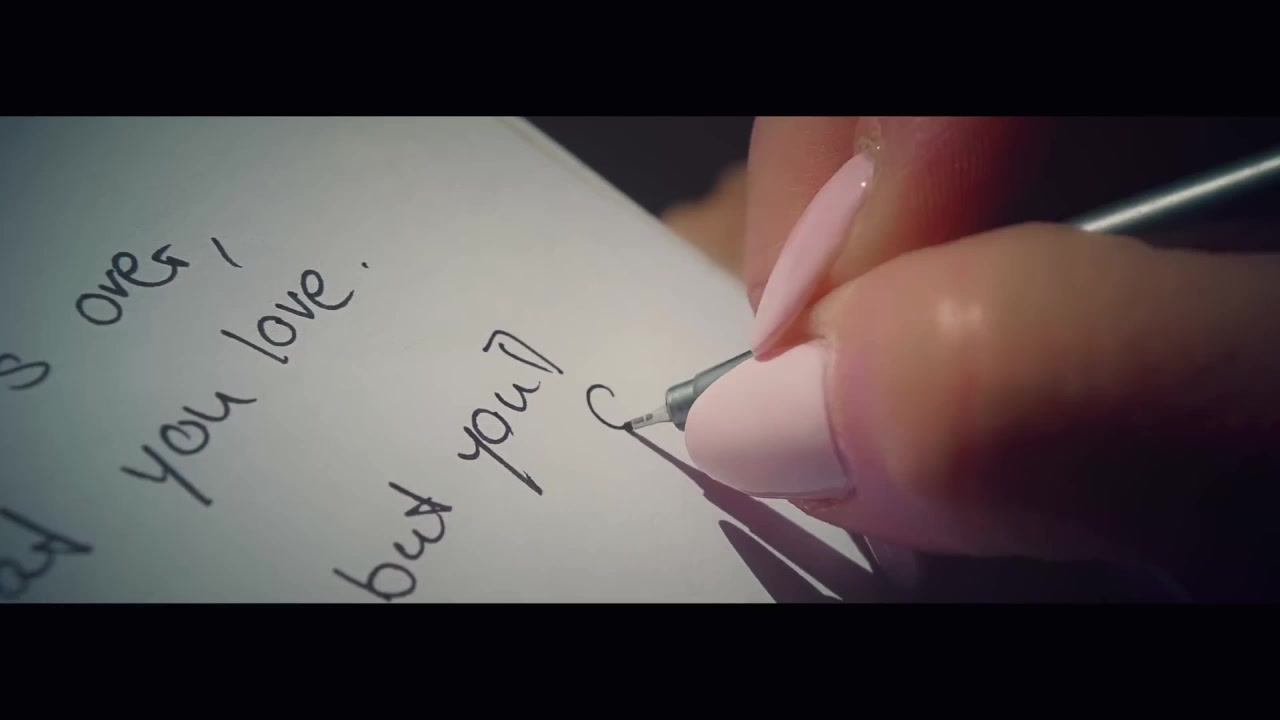 over,
you love.
but your